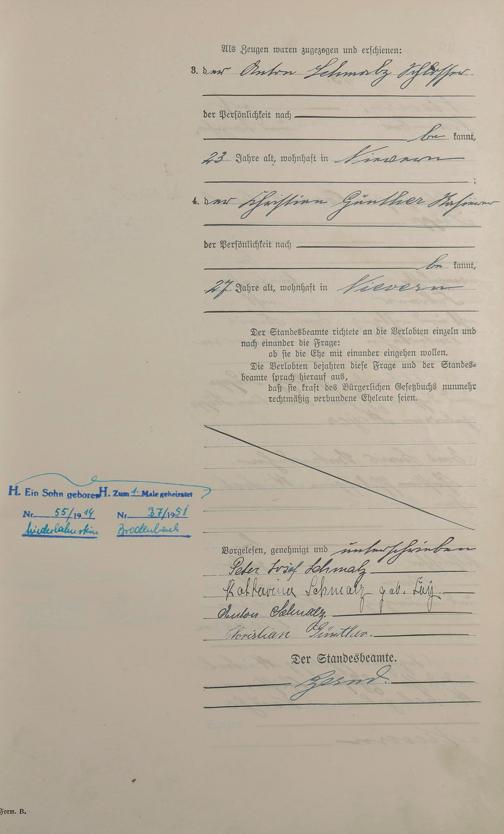 Als Zeugen waren zugezogen und erschienen:
3. der Anton Schmalz Schlosser
der Persönlichkeit nach
be kannt,
23 Jahre alt, wohnhaft in Nievern
;
4. der Christian Günther
der Persönlichkeit nach
be kannt,
27 Jahre alt, wohnhaft in Nievern
Der Standesbeamte richtete an die Verlobten einzeln und
nach einander die Frage:
ob sie die Ehe mit einander eingehen wollen.
Die Verlobten bejahten diese Frage und der Standes-
beamte sprach hierauf aus,
daß sie kraft des Bürgerlichen Gesetzbuchs nunmehr
rechtmäßig verbundene Eheleute seien.
H. Ein Sohn geboren
Nr. 55/1914
Niederlahnstein
H. Zum 1. Male geheiratet
Nr. 37/1951
Brodenbach
Vorgelesen, genehmigt und unterschrieben
Peter Josef Schmalz
Katharina Schmalz geb.
Anton Schmalz
Christian Günther
Der Standesbeamte.
Form. B.